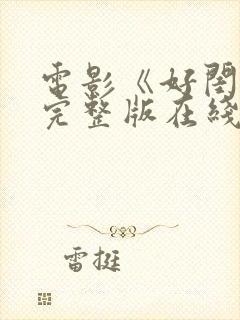 電影《好閏
完整版在綫
雷挺